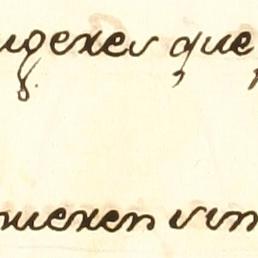 ugeres que
nueren vin